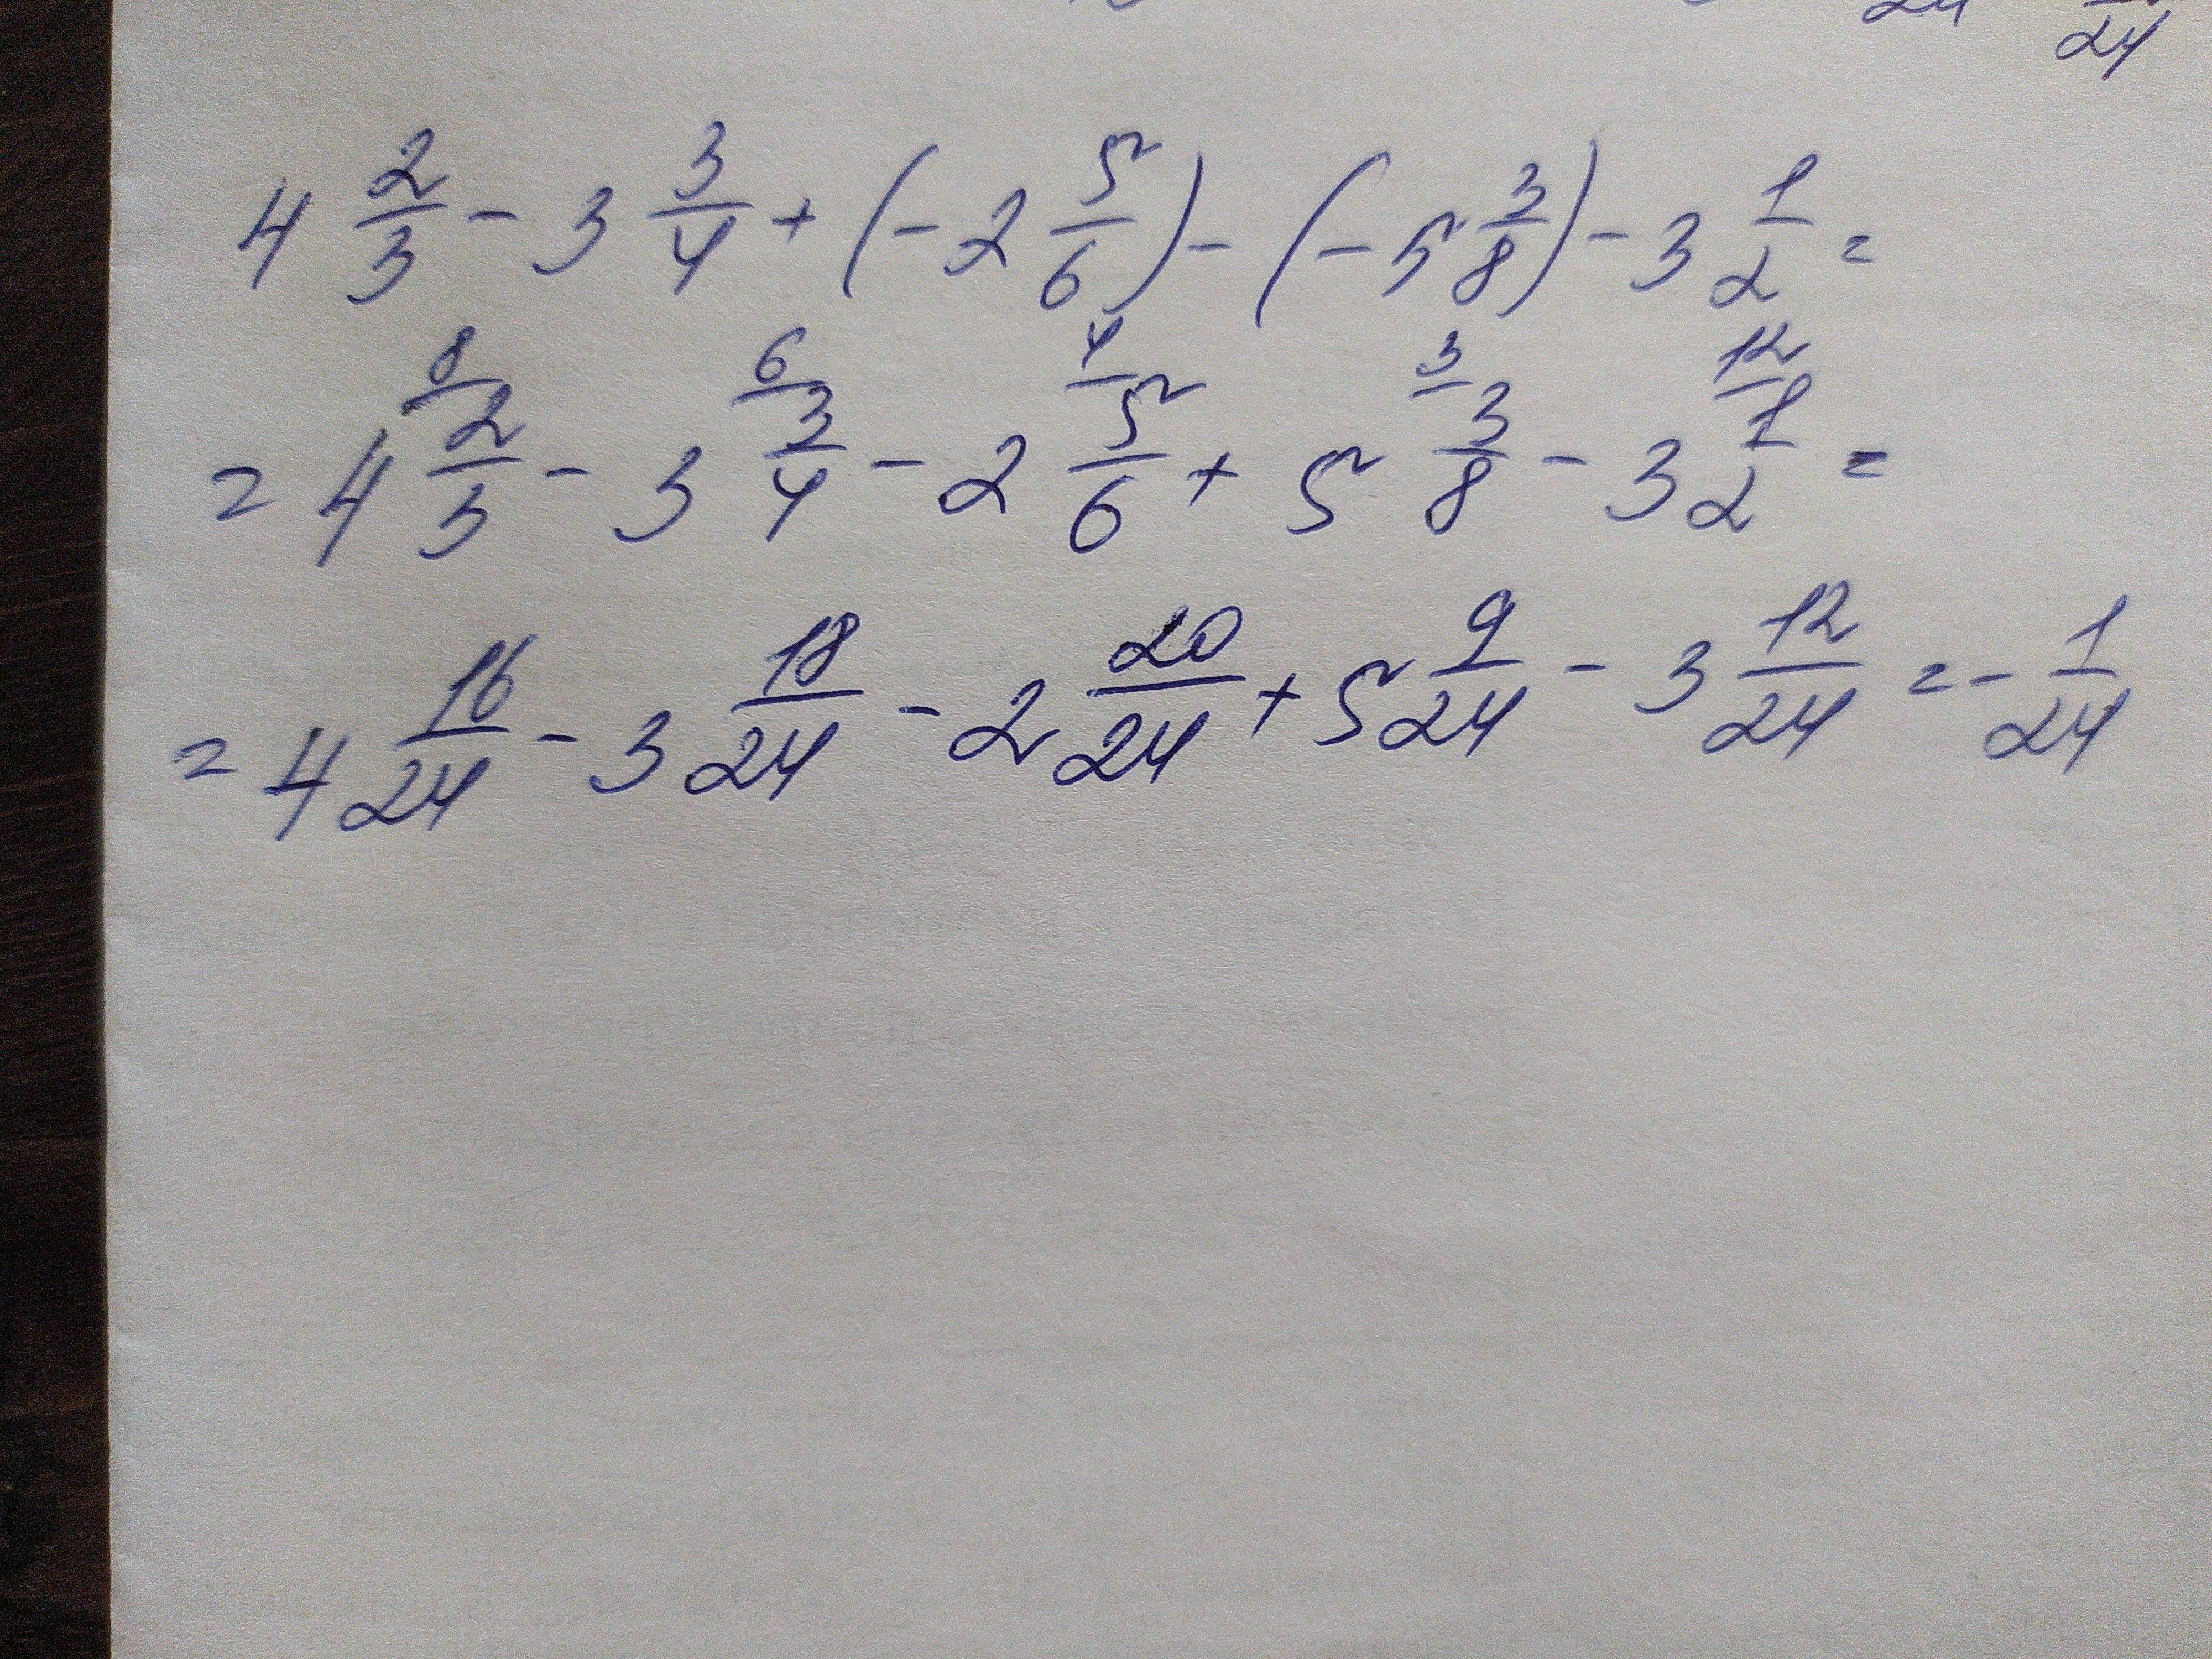 24 24
4 2/3 - 3 3/4 + (- 2 5/6) - (- 5 3/8) - 3 1/2 =
8 6 4 3 12
= 4 2/3 - 3 3/4 - 2 5/6 + 5 3/8 - 3 1/2 =
= 4 16/24 - 3 18/24 - 2 20/24 + 5 9/24 - 3 12/24 = - 1/24